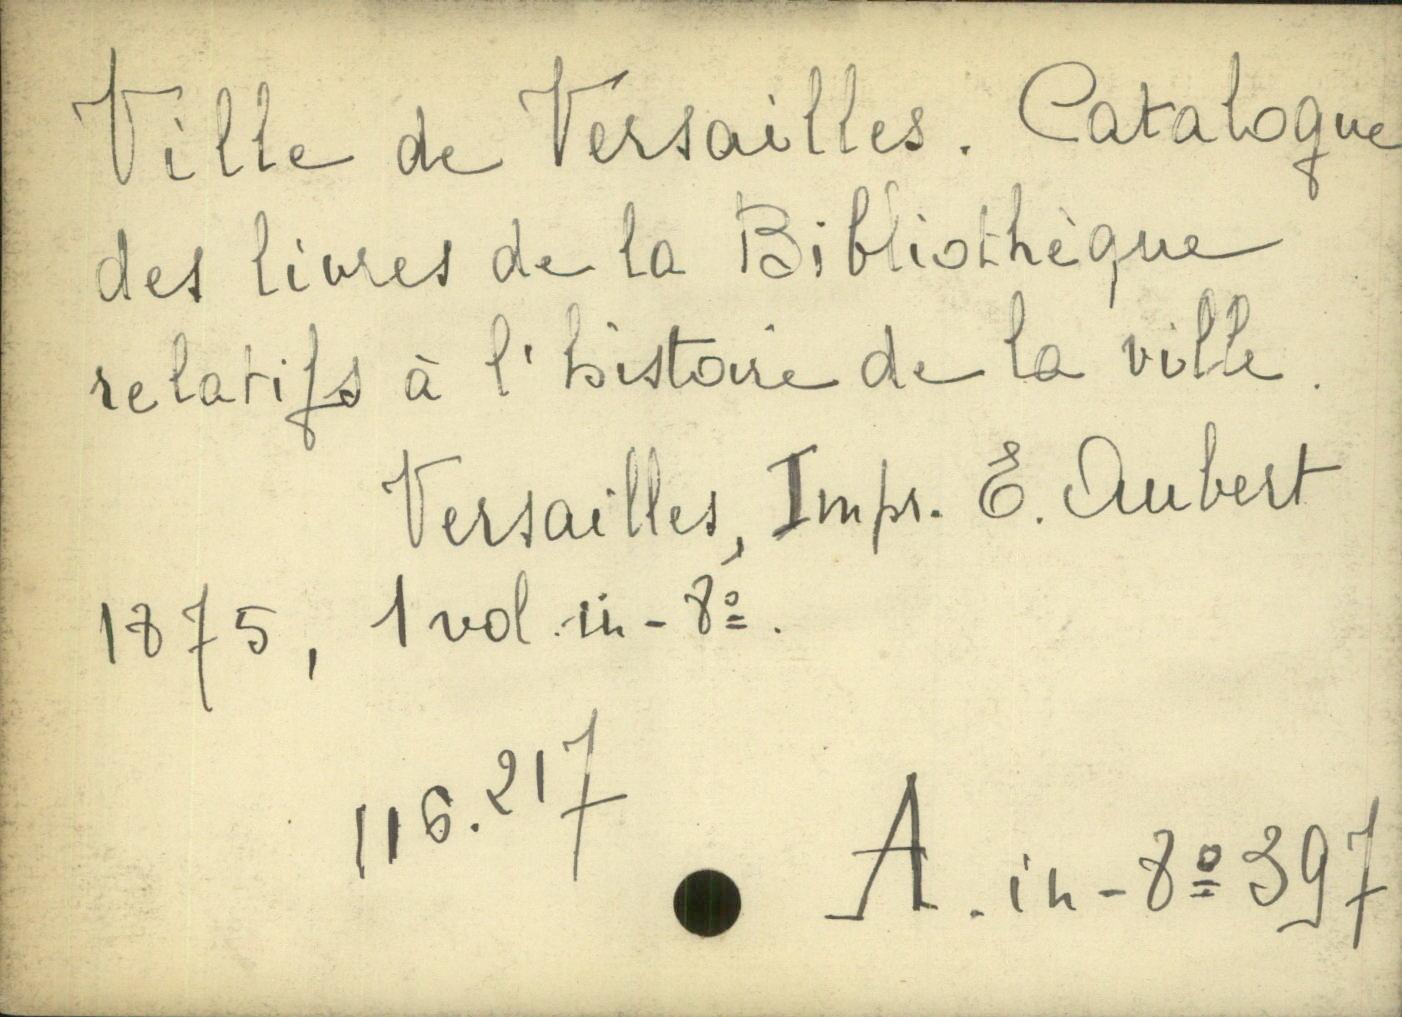 Ville de Versailles. Catalogue
des livres de la Bibliothèque
relatifs à l'histoire de la ville.
Versailles, Impr. E. Aubert
1875, 1 vol. in-8º.
116.217
A. in-8º 397